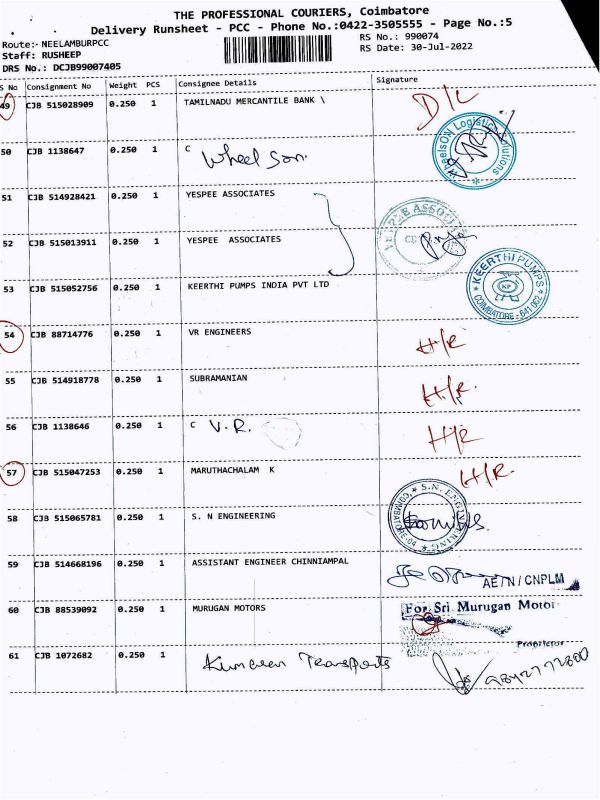 THE PROFESSIONAL COURIERS, Coimbatore
Delivery Runsheet - PCC - Phone No.:0422-3505555 - Page No.:5
Route:- NEELAMBURPCC
RS No.: 990074
Staff: RUSHEEP
RS Date: 30-Jul-2022
DRS No.: DCJB99007405
S No Consignment No Weight PCS Consignee Details Signature
49 CJB 515028909 0.250 1 TAMILNADU MERCANTILE BANK \ D/L
50 CJB 1138647 0.250 1 C Wheel Son. WheelsON Logistics Solutions
51 CJB 514928421 0.250 1 YESPEE ASSOCIATES
52 CJB 515013911 0.250 1 YESPEE ASSOCIATES YESPEE ASSOCI
53 CJB 515052756 0.250 1 KEERTHI PUMPS INDIA PVT LTD KEERTHI PUMPS KP COIMBATORE - 641 062
54 CJB 88714776 0.250 1 VR ENGINEERS H/R
55 CJB 514918778 0.250 1 SUBRAMANIAN H/R.
56 CJB 1138646 0.250 1 C V.R. H/R
57 CJB 515047253 0.250 1 MARUTHACHALAM K H/R.
58 CJB 515065781 0.250 1 S. N ENGINEERING S.N. ENGINEERING COIMBATORE
59 CJB 514668196 0.250 1 ASSISTANT ENGINEER CHINNIAMPAL AETN / CNPLM
60 CJB 88539092 0.250 1 MURUGAN MOTORS For Sri Murugan Motor
Proprietor
61 CJB 1072682 0.250 1 Kumaran Transports